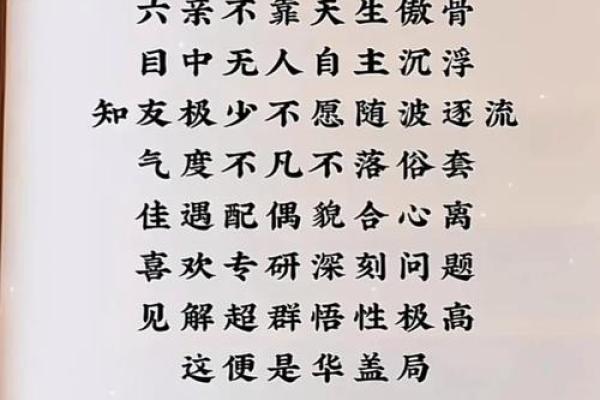 六亲不靠天生傲骨
目中无人自主沉浮
知友极少不愿随波逐流
气度不凡不落俗套
佳遇配偶貌合心离
喜欢专研深刻问题
见解超群悟性极高
这便是华盖局